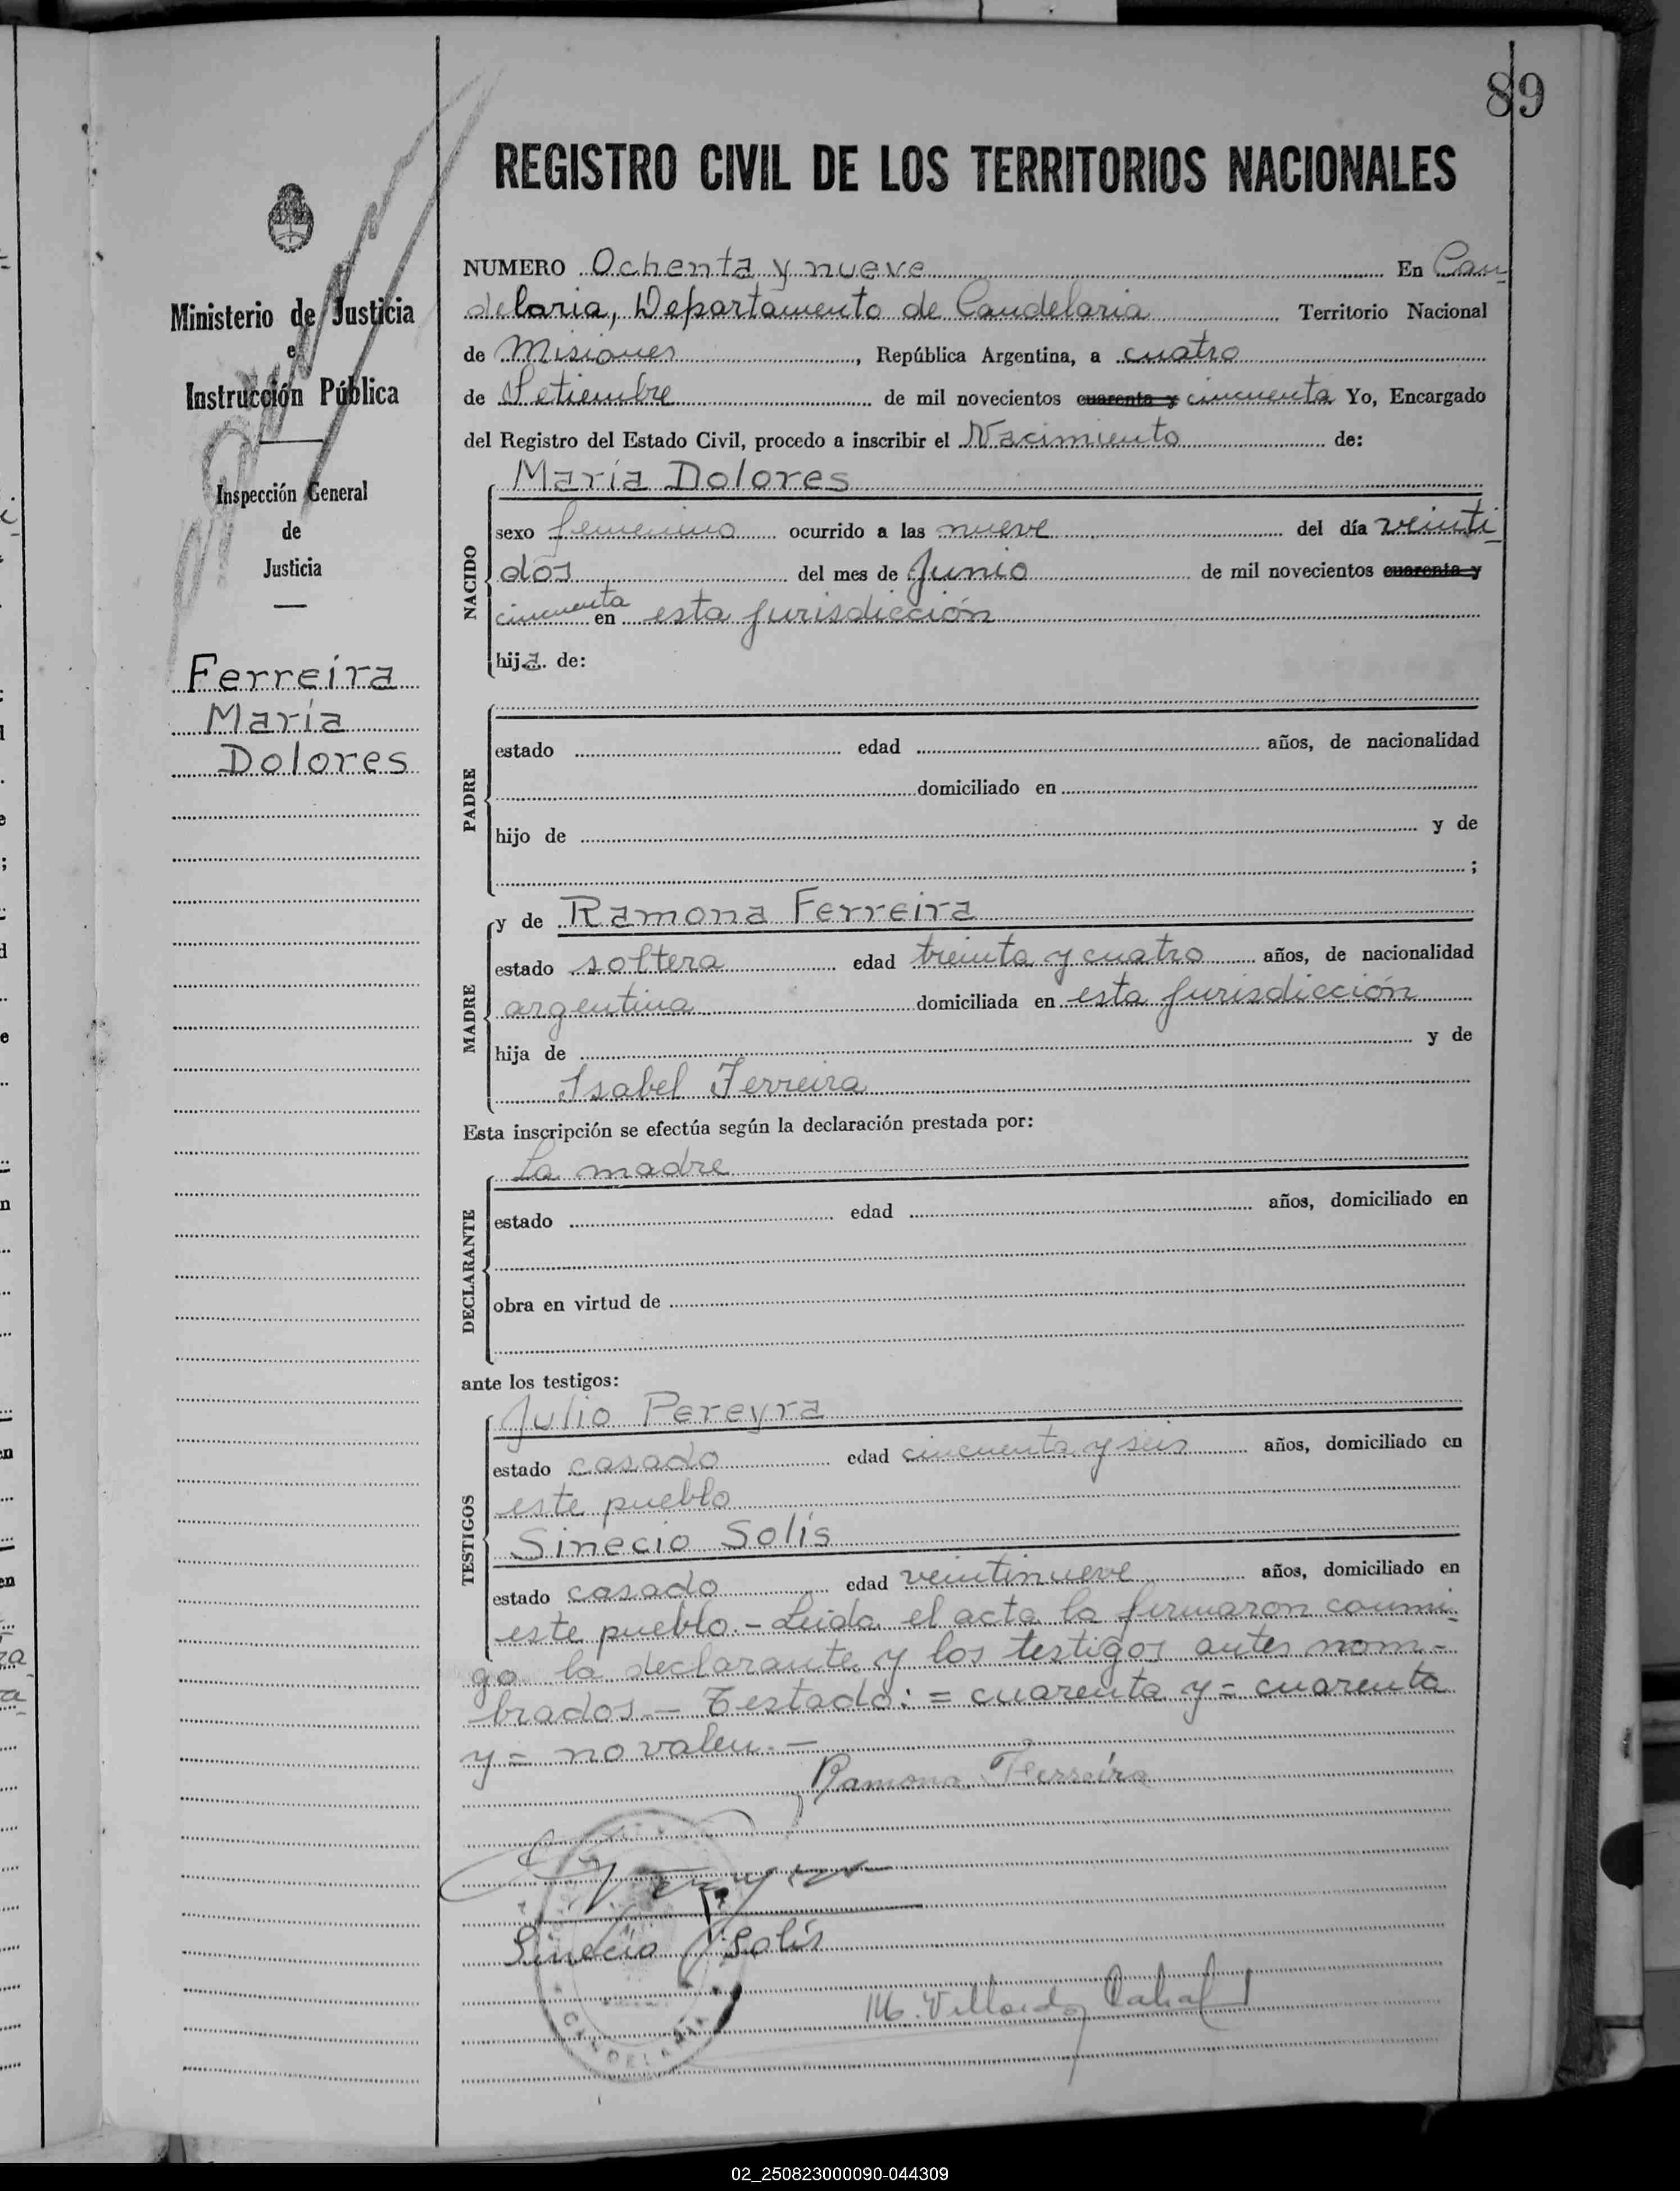 89
REGISTRO CIVIL DE LOS TERRITORIOS NACIONALES
Ministerio de Justicia
e
Instrucción Pública
Inspección General
de
Justicia
Ferreira
María
Dolores
NUMERO Ochenta y nueve En Can-
delaria, Departamento de Candelaria Territorio Nacional
de Misiones, República Argentina, a cuatro
de Setiembre de mil novecientos cuarenta y cincuenta Yo, Encargado
del Registro del Estado Civil, procedo a inscribir el Nacimiento de:
María Dolores
NACIDO
sexo femenino ocurrido a las nueve del día veinti-
dos del mes de Junio de mil novecientos cuarenta y
cincuenta en esta jurisdicción
hija de:
PADRE
estado edad años, de nacionalidad
domiciliado en
hijo de y de
;
MADRE
y de Ramona Ferreira
estado soltera edad treinta y cuatro años, de nacionalidad
argentina domiciliada en esta jurisdicción
hija de y de
Isabel Ferreira
Esta inscripción se efectúa según la declaración prestada por:
La madre
DECLARANTE
estado edad años, domiciliado en
obra en virtud de
ante los testigos:
Julio Pereyra
TESTIGOS
estado casado edad cincuenta y seis años, domiciliado en
este pueblo
Sinecio Solís
estado casado edad veintinueve años, domiciliado en
este pueblo.- Leida el acta la firmaron conmi-
go la declarante y los testigos antes nom-
brados.- Testado: = cuarenta y = cuarenta
y = no valen.-
Ramona Ferreira
Sinecio Solís
CANDELARIA
02_250823000090-044309